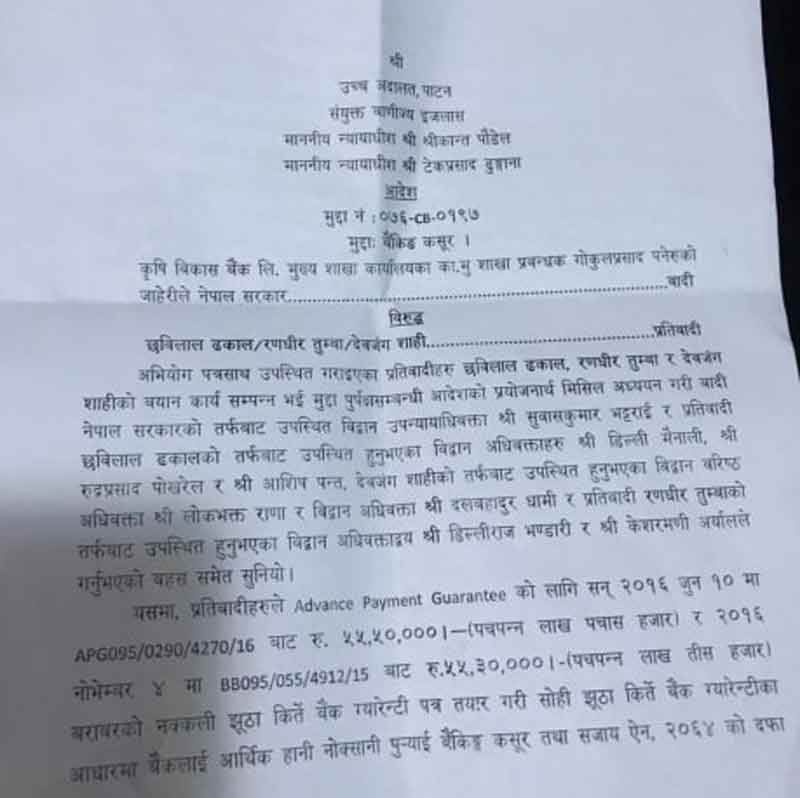 श्री
उच्च अदालत, पाटन
संयुक्त वाणीज्य इजलास
माननीय न्यायाधीश श्री श्रीकान्त पौडेल
माननीय न्यायाधीश श्री टेकप्रसाद ढुङ्गाना
आदेश
मुद्दा नं : ०७६-CB-०१९७
मुद्दाः बैंकिङ कसूर ।
कृषि विकास बैंक लि. मुख्य शाखा कार्यालयका का.मु शाखा प्रबन्धक गोकुलप्रसाद पनेरुको
जाहेरीले नेपाल सरकार..................................................................वादी
विरुद्ध
छविलाल ढकाल/रणधीर तुम्बा/देवजंग शाही........................................प्रतिवादी
अभियोग पत्रसाथ उपस्थित गराइएका प्रतिवादीहरु छविलाल ढकाल, रणधीर तुम्बा र देवजंग
शाहीको बयान कार्य सम्पन्न भई मुद्दा पुर्पक्षसम्बन्धी आदेशको प्रयोजनार्थ मिसिल अध्ययन गरी वादी
नेपाल सरकारको तर्फबाट उपस्थित विद्वान उपन्यायाधिवक्ता श्री सुवासकुमार भट्टराई र प्रतिवादी
छविलाल ढकालको तर्फबाट उपस्थित हुनुभएका विद्वान अधिवक्ताहरु श्री डिल्ली मैनाली, श्री
रुद्रप्रसाद पोखरेल र श्री आशिष पन्त, देवजंग शाहीको तर्फबाट उपस्थित हुनुभएका विद्वान वरिष्ठ
अधिवक्ता श्री लोकभक्त राणा र विद्वान अधिवक्ता श्री दलबहादुर धामी र प्रतिवादी रणधीर तुम्बाको
तर्फबाट उपस्थित हुनुभएका विद्वान अधिवक्ताद्वय श्री डिल्लीराज भण्डारी र श्री केशरमणी अर्यालले
गर्नुभएको बहस समेत सुनियो ।
यसमा, प्रतिवादीहरुले Advance Payment Guarantee को लागि सन् २०१६ जुन १० मा
APG095/0290/4270/16 बाट रु. ५५,५०,०००।—(पचपन्न लाख पचास हजार) र २०१६
नोभेम्बर ४ मा BB095/055/4912/15 बाट रु.५५,३०,०००।-(पचपन्न लाख तीस हजार)
बराबरको नक्कली झूठा किर्ते बैंक ग्यारेन्टी पत्र तयार गरी सोही झूठा किर्ते बैंक ग्यारेन्टीका
आधारमा बैंकलाई आर्थिक हानी नोक्सानी पुर्‍याई बैंकिङ्ग कसूर तथा सजाय ऐन, २०६४ को दफा